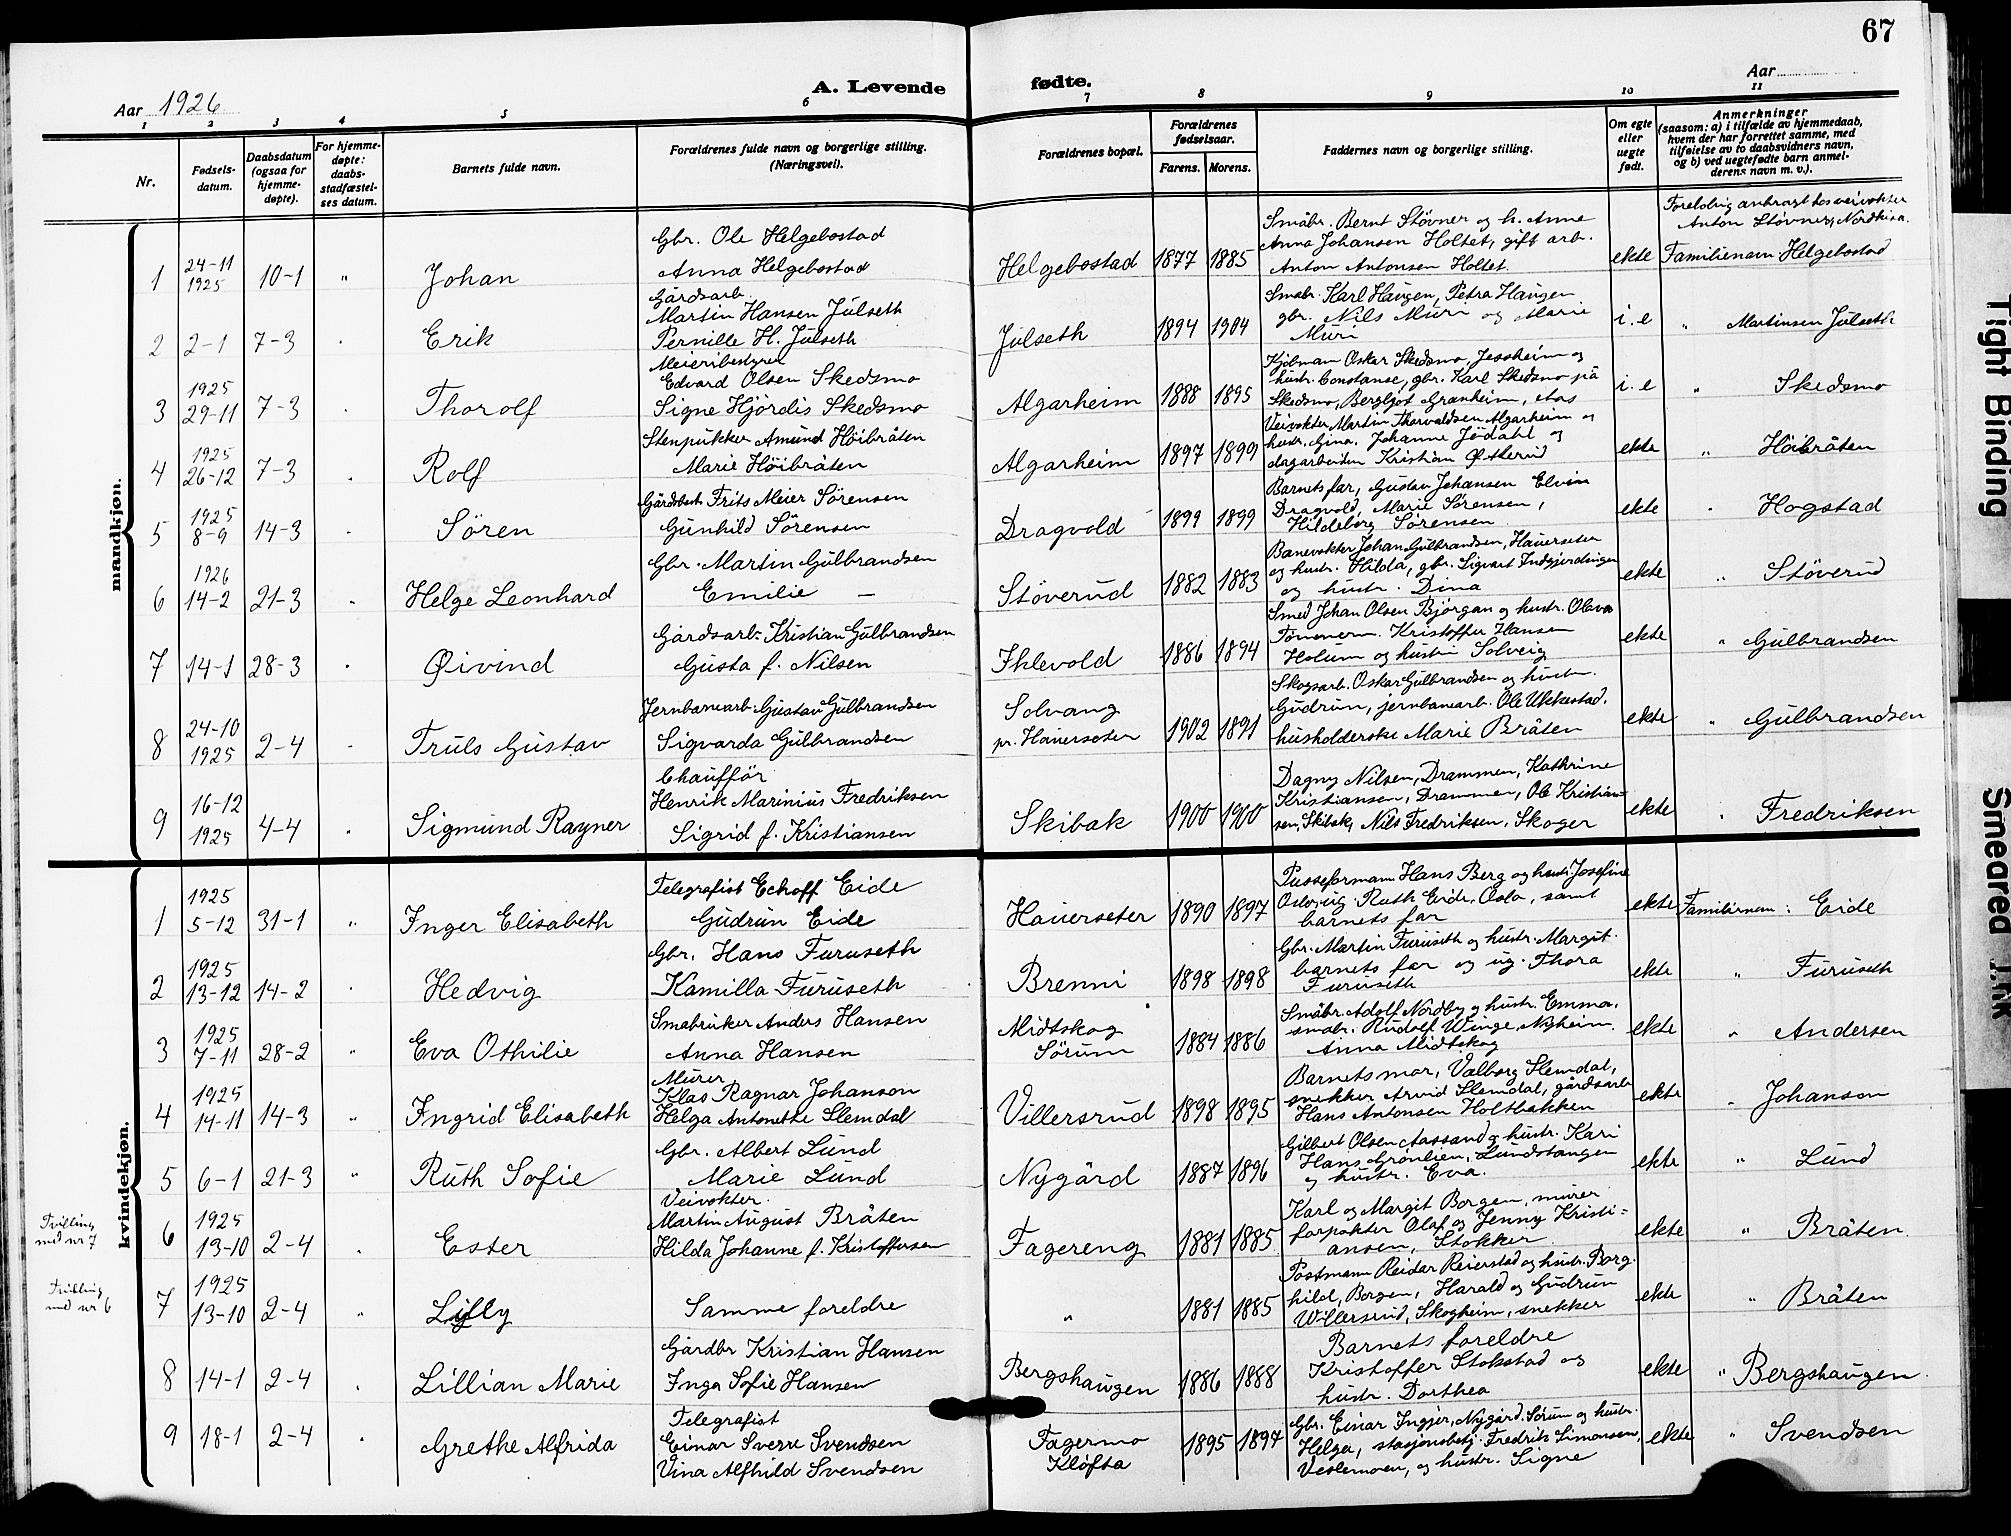 67
Aar 1926
A. Levende fødte.
Aar
1 2 3 4 5 6 7 8 9 10 11
Nr.
Fødsels-
datum.
Daabsdatum
(ogsaa for
hjemme-
døpte).
For hjemme-
døpte:
daabs-
stadfæstel-
ses datum.
Barnets fulde navn.
Forældrenes fulde navn og borgerlige stilling.
(Næringsvei).
Forældrenes bopæl.
Forældrenes
fødselsaar.
Farens. Morens.
Faddernes navn og borgerlige stilling.
Om egte
eller
uegte
født.
Anmerkninger
(saasom: a) i tilfælde av hjemmedaab,
hvem der har forrettet samme, med
tilføielse av to daabsvidners navn,
og b) ved uegtefødte barn anmel-
derens navn m. v.).
mandkjøn.
1 24-11 1925 10-1 " Johan
Gbr. Ole Helgebostad
Anna Helgebostad
Helgebostad 1877 1885
Småbr. Bernt Stövner og h. Anne
Anna Johansen Holtet, gift arb.
Anton Antonsen Holtet.
ekte
Anton Stövner, Nordkisa.
Familienam Helgebostad
2 2-1 7-3 Erik
Gårdsarb.
Martin Hansen Julseth
Pernille H. Julseth
Julseth 1894 1904
Småbr. Karl Haugen, Petra Haugen
gbr. Nils Muri og Marie
Muri
i.e " Martinsen Julseth
3 1925 29-11 7-3 Thorolf
Meieribestyrer
Edvard Olsen Skedsmo
Signe Hjördis Skedsmo
Algarheim 1888 1895
Kjöbman Oskar Skedsmo, Jessheim og
hustr. Constanse, gbr. Karl Skedsmo på
Skedsmo, Bergljot Granheim, etas
i.e " Skedsmo
4 1925 26-12 7-3 Rolf
Stenpukker Amund Höibråten
Marie Höibråten
Algarheim 1897 1899
Veivokter Martin Thorvaldsen Algarheim og
hustr. Gina. Johanne Jödahl og
dagarbeiden Kristian Østterud
ekte " Höibråten
5 1925 8-9 14-3 Sören
Gårdbest. Frits Meier Sörensen
Gunhild Sörensen
Dragvold 1899 1899
Barnets far, Gustav Johansen Elvin
Dragvold, Marie Sörensen,
Hildeborg Sörensen
ekte " Hogstad
6 1926 14-2 21-3 Helge Leonhard
Gbr. Martin Gulbrandsen
Emilie —
Stöverud 1882 1883
Banevokter Johan Gulbrandsen, Hauerseter
og hustr. Hilda, gbr. Sigvart Indgjerdingen
og hustr. Dina
ekte " Stöverud
7 14-1 28-3 Øivind
Gårdsarb. Kristian Gulbrandsen
Gusta f. Nilsen
Ihlevold 1886 1894
Smed Johan Olsen Björgan og hustr. Olava
Tömmerm. Kristoffer Hansen
Holum og hustru Solveig
ekte " Gulbrandsen
8 24-10 1925 2-4 Truls Gustav
Jernbanearb. Gustav Gulbrandsen
Sigvarda Gulbrandsen
Solvang
pr. Hauerseter
1902 1891
Skogsarb. Oskar Gulbrandsen og hustru
Gudrun, jernbanearb. Ole Ukkestad,
husholderske Marie Bråten
ekte " Gulbrandsen
9 16-12 1925 4-4 Sigmund Ragner
Chaufför
Henrik Marinius Fredriksen
Sigrid f. Kristiansen
Skibak 1900 1900
Dagny Nilsen, Drammen, Kathrine
Kristiansen, Drammen, Ole Kristian=
sen, Skibak, Nils Fredriksen, Skoger
ekte " Fredriksen
kvindekjøn.
1 1925 5-12 31-1 " Inger Elisabeth
Telegrafist Echoff Eide
Gudrun Eide
Hauerseter 1890 1897
Pusseformann Hans Berg og hustr. Josefine
Oslo, ug. Ruth Eide, Oslo, samt
barnets far
ekte Familienam: Eide
2 1925 13-12 14-2 Hedvig
Gbr. Hans Furuseth
Kamilla Furuseth
Brenni 1898 1898
Gbr. Martin Furuseth og hustr. Margit.
barnets far og ug. Thora
Furuseth
ekte " Furuseth
3 1925 7-11 28-2 " Eva Othilie
Småbruker Anders Hansen
Anna Hansen
Midtskog
Sörum
1884 1886
Småbr. Adolf Nordby og hustr. Emma,
småbr. Rudolf Winge, Nyheim.
Anna Midtskog
ekte " Andersen
4 1925 14-11 14-3 " Ingrid Elisabeth
Murer
Klas Ragnar Johanson
Helga Antonette Slemdal
Villersrud 1898 1895
Barnets mor, Valborg Slemdal,
snekker Arvid Slemdal, gårdsarb.
Hans Antonsen Holtbakken
ekte " Johanson
5 6-1 21-3 " Ruth Sofie
Gbr. Albert Lund
Marie Lund
Nygård 1887 1896
Gilbert Olsen Aassand og hustr. Kari
Hans Grönlien, Lundstangen
og hustr. Eva.
ekte " Lund
Tvilling
med nr 7
6 1925 13-10 2-4 Ester
Veivokter
Martin August Bråten
Hilda Johanne f. Kristoffersen
Fagereng 1881 1885
Karl og Margit Borgen, murer
forpakter Olaf og Jenny Kristi=
ansen, Stokker
ekte " Bråten
Tvilling
med nr 6
7 1925 13-10 2-4 " Lilly
Samme foreldre
" 1881 1885
Postmann Reidar Reierstad og hustr. Borg-
hild, Borgen, Harald og Gudrun
Willersrud, Skogheim, snekker
ekte " Bråten
8 14-1 2-4 Lillian Marie
Gårdbr Kristian Hansen
Inga Sofie Hansen
Bergshaugen 1886 1888
Barnets foreldre
Kristoffer Stokstad og
hustr. Dorthea
ekte " Bergshaugen
9 18-1 2-4 Grethe Alfrida
Telegrafist
Einar Sverre Svendsen
Vina Alfhild Svendsen
Fagermo
Klöfta
1895 1897
Gbr. Einar Ingjer, Nygård. Sörum og hustr.
Helga, stasjonsbetj. Fredrik Simonsen,
Veslemoen, og hustr. Signe
ekte " Svendsen
Tight Binding
Smeared Ink